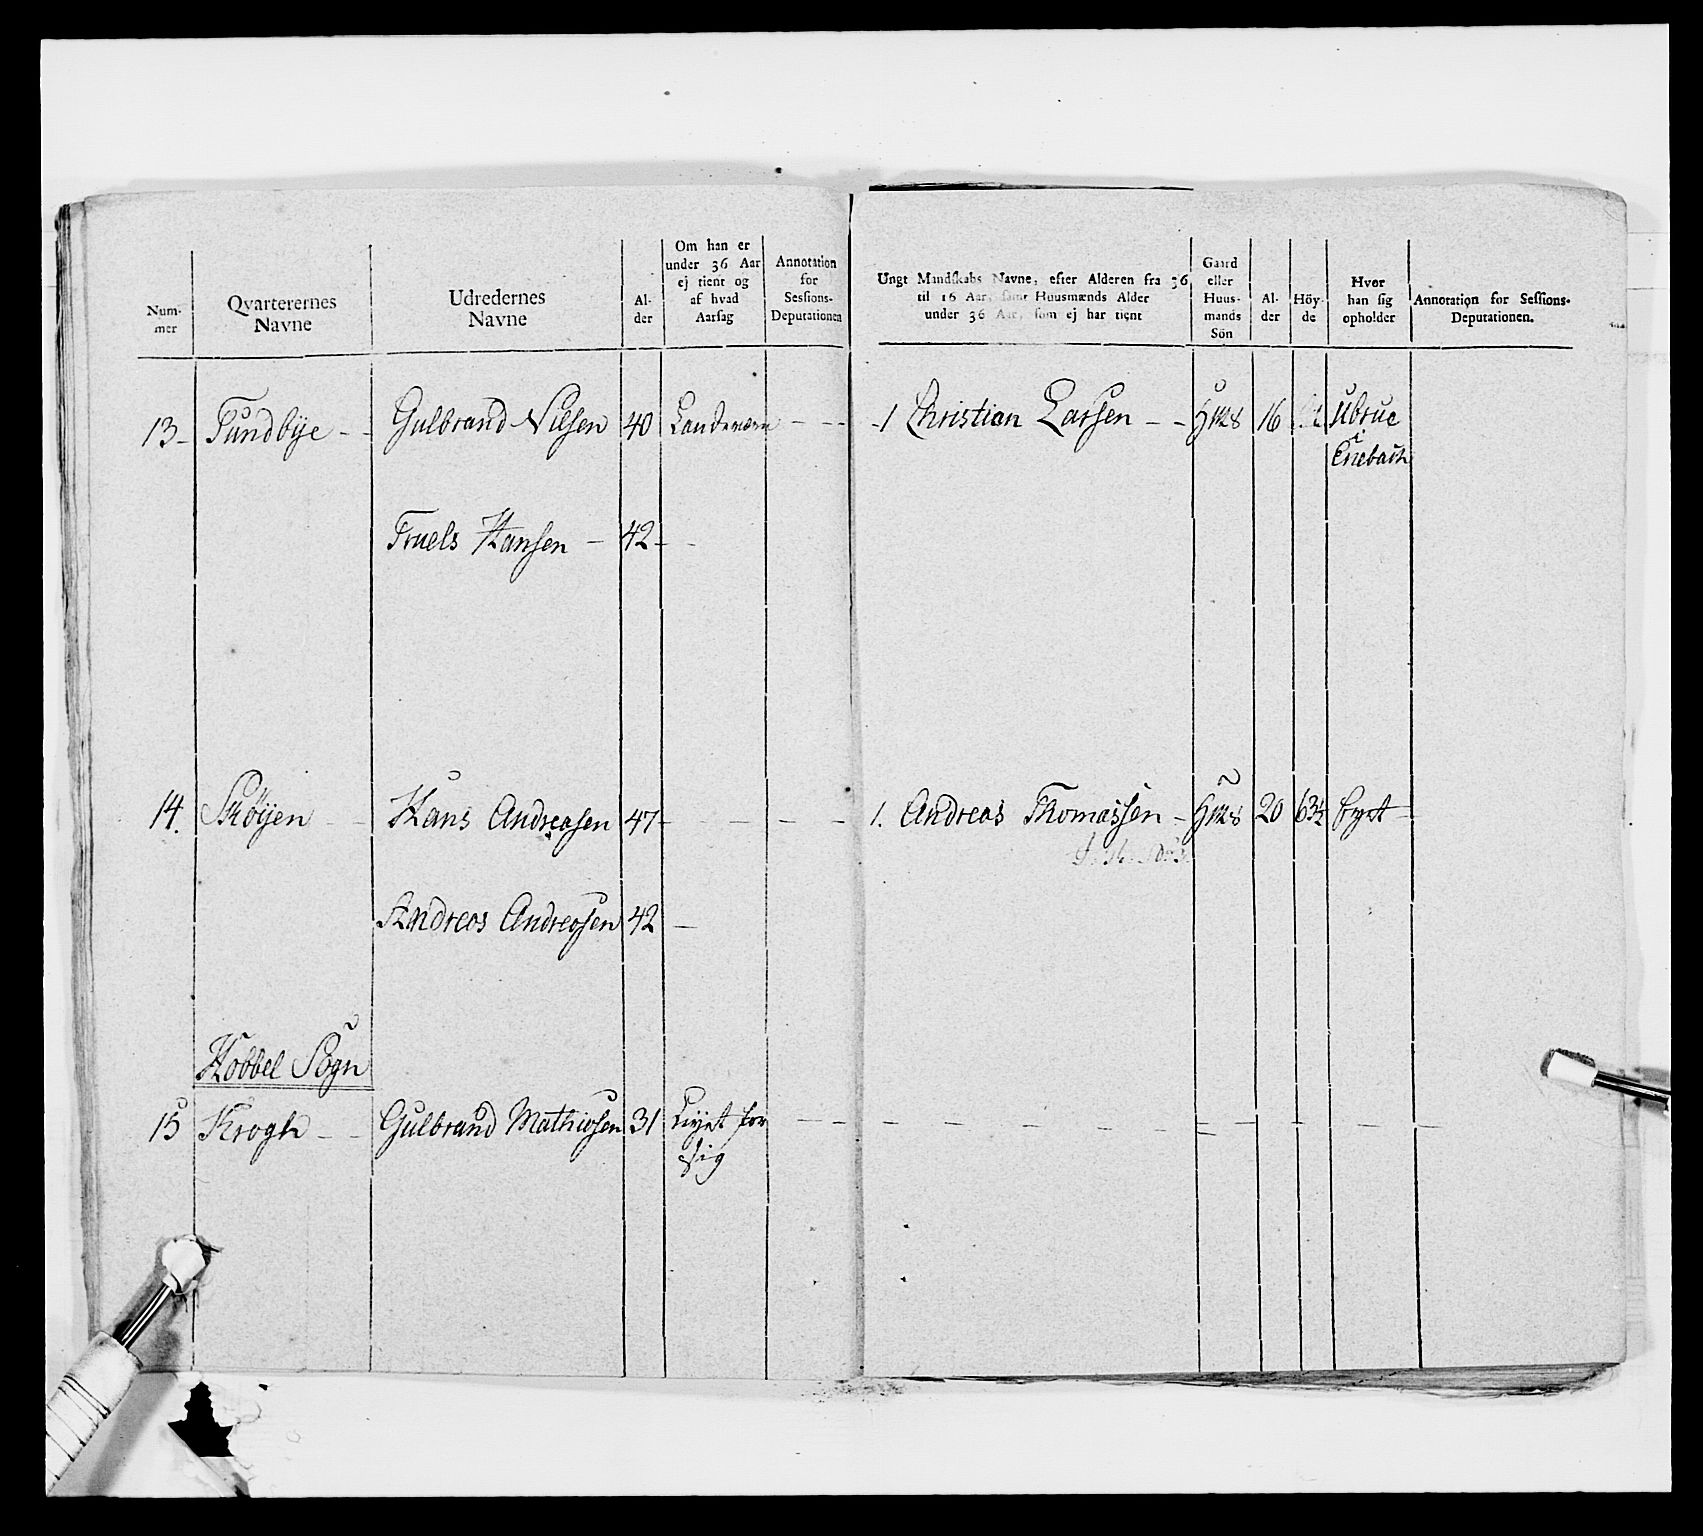 Num-
mer
Qvarterernes
Navne
Udredernes
Navne
Al-
der
Om han er
under 36 Aar
ej tient og
af hvad
Aarsag
Annotation
for
Sessions-
Deputationen
Ungt Mandskabs Navne, efter Alderen fra 36
til 16 Aar, samt Huusmænds Alder
under 36 Aar, som ej har tient
Gaard
eller
Huus-
mands
Sön
Al-
der
Höy-
de
Hvor
han sig
opholder
Annotation for Sessions-
Deputationen.
13 Tundbÿe Gulbrand Nilsen 40 Landværn 1 Christian Larsen 16
Enebach
Truels Hansen 42
14. Hans Andreasen 47 1. Andreas Thomassen 20 63½
Andreas Andreasen 42
Hobbel Sogn
15 Krogh Gulbrand Mathiesen 31 for
sig